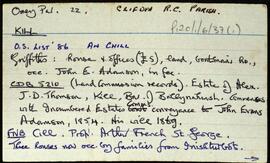 Omey Par. 22. CLIFDEN R.C. PARISH.
P.201/6/37(1)
KILL
O.S. LIST '86 AN CHILL
Griffiths: House & offices (£5), Land, Constab. Ho.,
occ. John E. Adamson, in fee.
CDB 8210 (Land Commission records): Estate of Alex.
J.D. Thomson, Kill, Bar. of Ballynahinch.
Incumbered Estates Court conveyance to John Evans
Adamson, 1854. His will 1869.
FNB Cill. Prop. Arthur French St George
Three houses now occ. by families from Inishturbot.